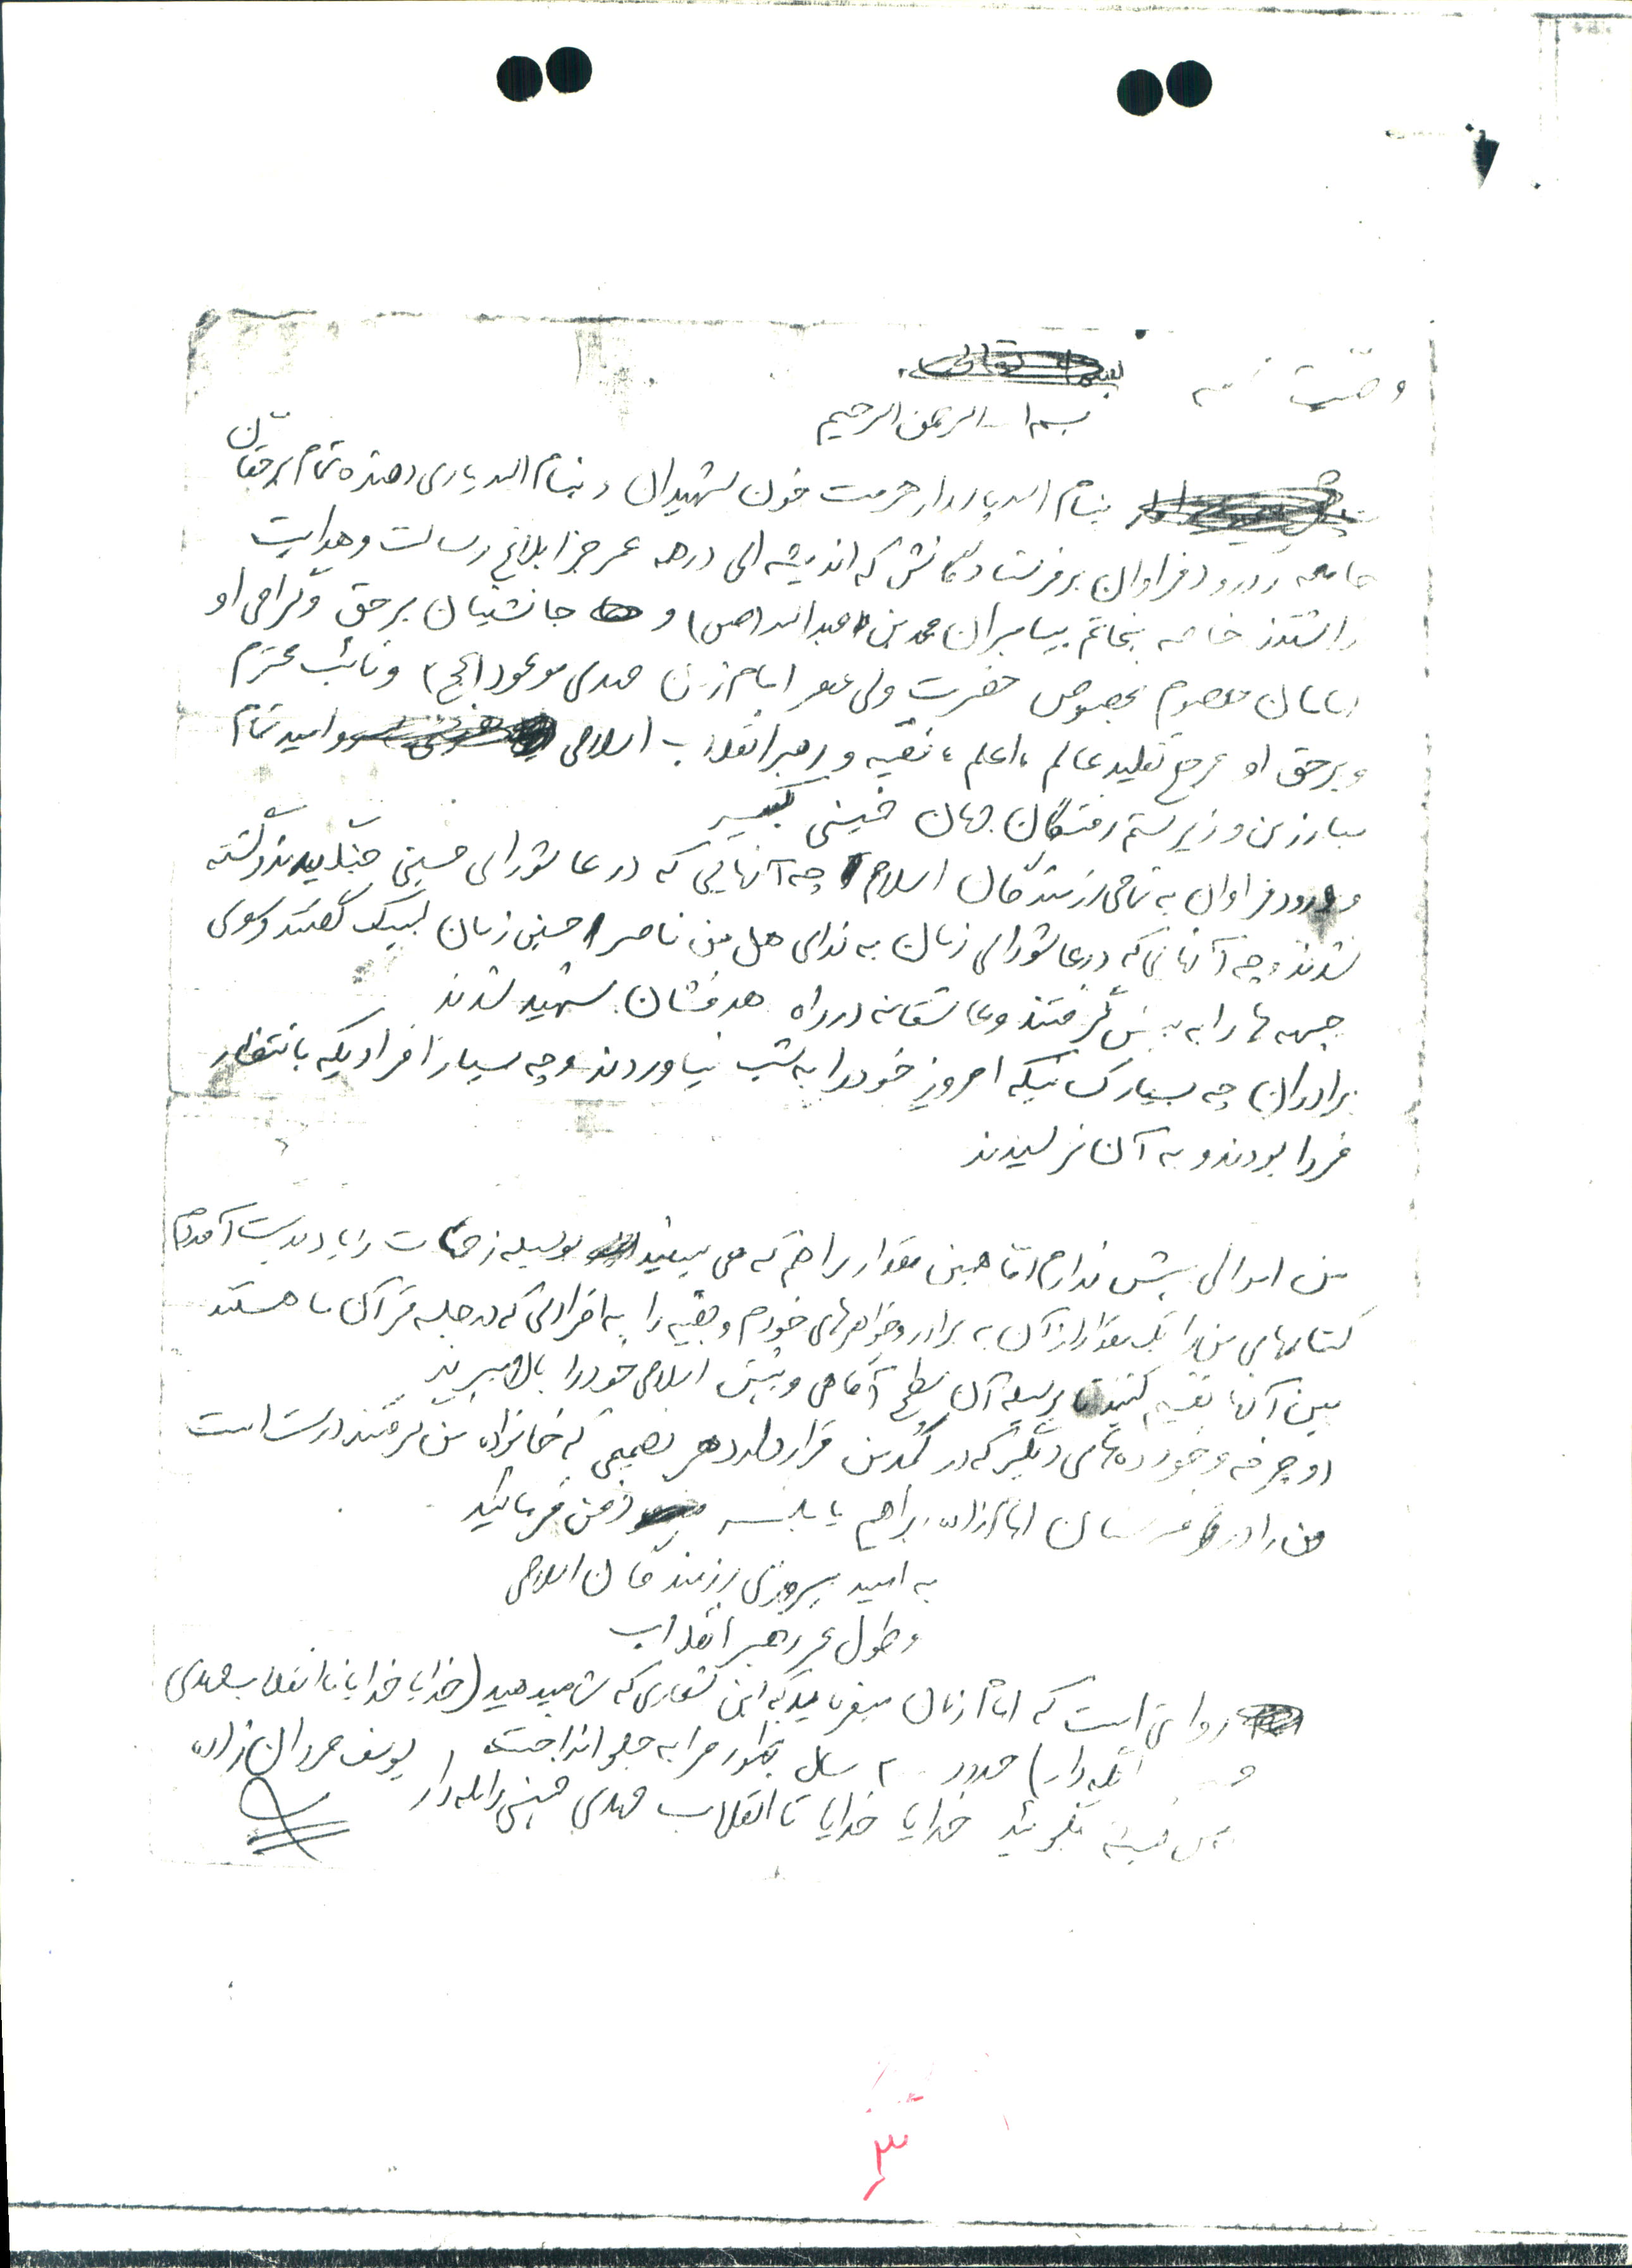 وصیت نامه
بسم الله الرحمن الرحیم
بنام الله پاسدار حرمت خون شهیدان و بنام الله یاری دهنده تمام برحقان
جامعه و درود فراوان بر فرستادگانش که اندیشه ای در همه عمر جز ابلاغ رسالت و هدایت
نداشتند خاصه بخاتم پیامبران محمد بن عبدالله (ص) و جانشینان بر حق و گرامی او
امامان معصوم بخصوص حضرت ولی عصر امام زمان مهدی موعود (عج) و نائب محترم
و برحق او مرجع تقلید عالم ، اعلم ، فقیه و رهبر انقلاب اسلامی و امید تمام
مبارزین و زیر ستم رفتگان جهان خمینی کبیر
و درود فراوان به تمامی رزمندگان اسلام چه آنهایی که در عاشورای حسینی جنگیدند و کشته
شدند و چه آنهائی که در عاشورای زمان به ندای هل من ناصر حسین زمان لبیک گفتند و سوی
جبهه ها را به پیش گرفتند و عاشقانه در راه هدفشان شهید شدند
برادران چه بسیار کسانیکه امروز خود را به شب نیاوردند و چه بسیار افرادیکه بانتظار
فردا بودند و به آن نرسیدند
من اموالی بیش ندارم اما همین مقدار را هم که می بینید بوسیله زحمات زیاد بدست آمده
کتابهای من را یک مقدار از آن به برادر و خواهرهای خودم و بقیه را به افرادی که در جلسه قرآن ما هستند
بین آنها تقسیم کنید تا بوسیله آن سطح آگاهی و بینش اسلامی خود را بالا ببرند
دوچرخه و خورده های دیگر که در کمد من قرار دارد هر تصمیمی که خانواده من گرفتند درست است
من را در امامزاده ابراهیم بابلسر دفن فرمائید
به امید پیروزی رزمندگان اسلامی
و طول عمر رهبر انقلاب
روایتی است که امام زمان میفرماید که این شعاری که شما میدهید (خدایا خدایا تا انقلاب مهدی
نگه دار) حدود سال ظهور مرا به جلو انداخت
همیشه بگوئید خدایا خدایا تا انقلاب مهدی خمینی را نگه دار
یوسف مردان زاده
۳